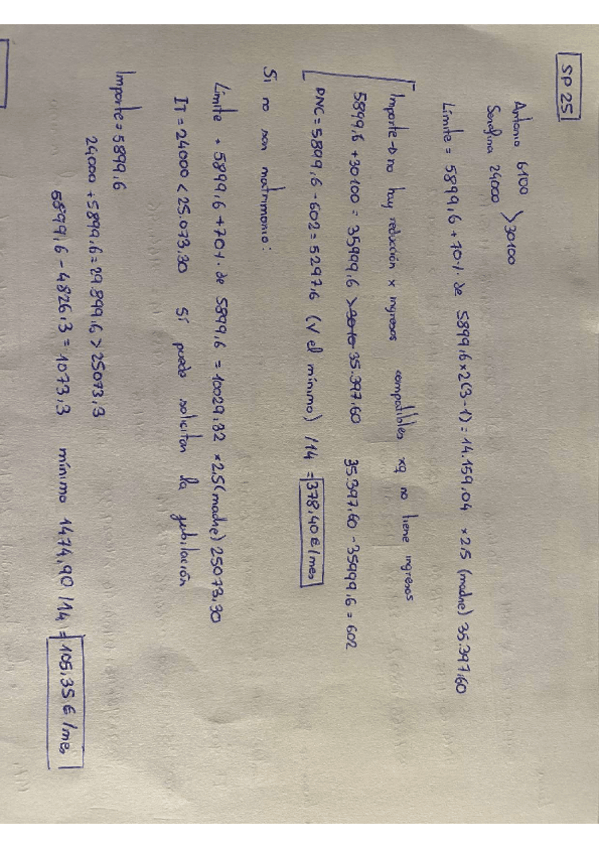 SP 25
Antonio 6100
Serafina 24000 > 30100
Límite = 5899,6 + 70% de 5899,6 x 2(3-1) = 14.159,04 x 2,5 (madre) 35.397,60
Importe → no hay reducción x ingresos compatibles xq no tiene ingresos
5899,6 + 30100 = 35999,6 > 3010 35.397,60 35.397,60 - 35999,6 = 602
PNC = 5899,6 - 602 = 5297,6 (√ el mínimo) /14 = 378,40 €/mes
Si no son matrimonio:
Límite = 5899,6 + 70% de 5899,6 = 10029,32 x 2,5 (madre) 25073,30
IT = 24000 < 25.073.30 Sí puede solicitar la jubilación
Importe = 5899,6
24000 + 5899,6 = 29.899,6 > 25073,3
5899,6 - 4826,3 = 1073,3 mínimo 1474,90 /14 = 105,35 €/mes